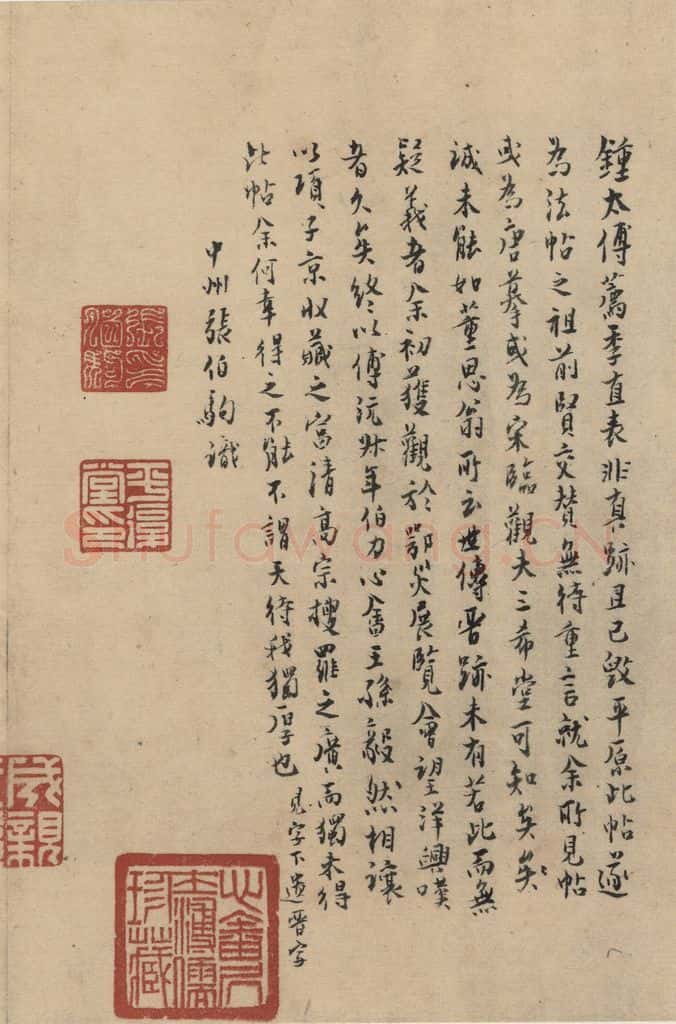 鍾太傅薦季直表非真跡且已毀平原此帖遂
為法帖之祖前賢交贊無待重言就余所見帖
或為唐摹或為宋臨觀夫三希堂可知矣矣
誠未能如董思翁所云世傳晉跡未有若此而無
疑義者余初獲觀於鄂災展覽會望洋興嘆
者久矣終以傅沅叔年伯力心畬王孫毅然相讓
以項子京收藏之富清高宗搜羅之廣而獨未得
此帖余何幸得之不能不謂天待我獨厚也
見字下遺晉字
中州張伯駒識
平復堂印
溥儒
珍藏
成親
Shufawang.CN